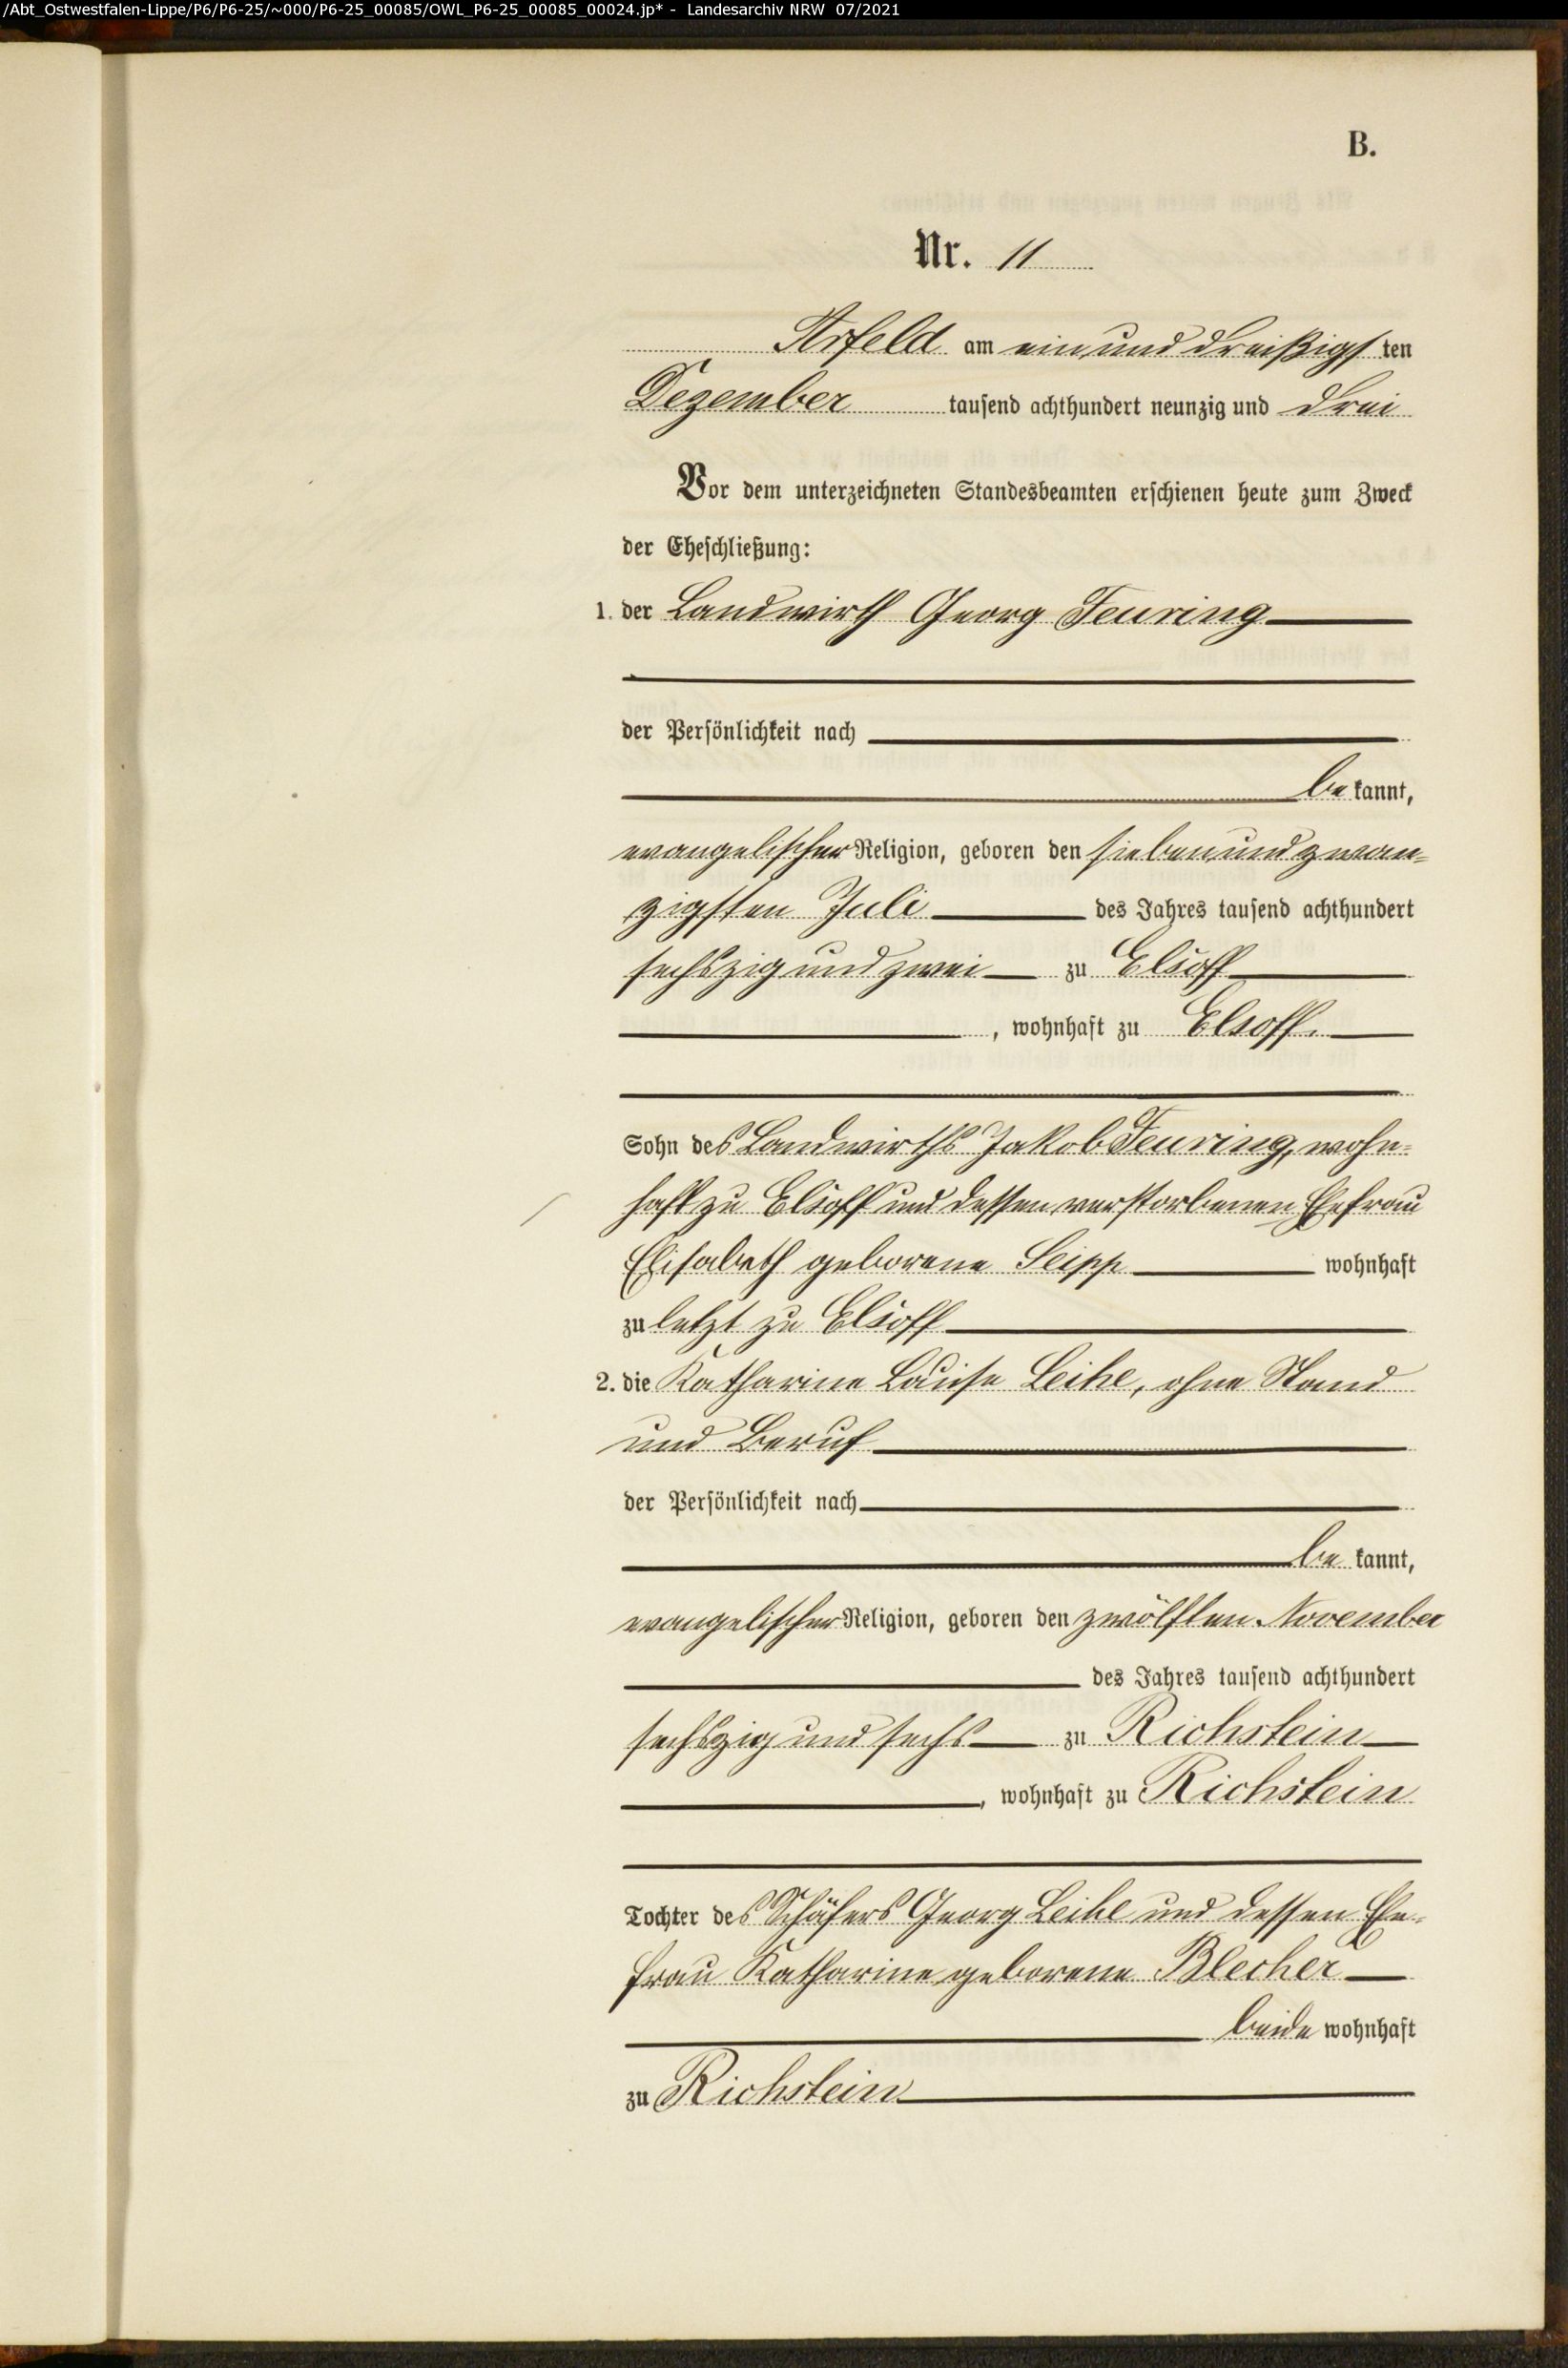 /Abt_Ostwestfalen-Lippe/P6/P6-25/~000/P6-25_00085/OWL_P6-25_00085_00024.jp* - Landesarchiv NRW 07/2021
B.
Nr. 11
Arfeld am ein und dreißigsten
Dezember tausend achthundert neunzig und drei
Vor dem unterzeichneten Standesbeamten erschienen heute zum Zweck
der Eheschließung:
1. der Landwirth Georg Feuring
der Persönlichkeit nach
bekannt,
evangelischer Religion, geboren den sieben und zwan-
zigsten Juli des Jahres tausend achthundert
sechszig und zwei zu Elsoff
, wohnhaft zu Elsoff.
Sohn des Landwirths Jakob Feuring, wohn-
haft zu Elsoff und dessen verstorbenen Ehefrau
Elisabeth geborene Seipp wohnhaft
zuletzt zu Elsoff
2. die Katharine Louise Leihe, ohne Stand
und Beruf
der Persönlichkeit nach
bekannt,
evangelischer Religion, geboren den zwölften November
des Jahres tausend achthundert
sechszig und sechs zu Richstein
, wohnhaft zu Richstein
Tochter des Schäfers Georg Leihe und dessen Ehe-
frau Katharine geborene Blecher
beide wohnhaft
zu Richstein